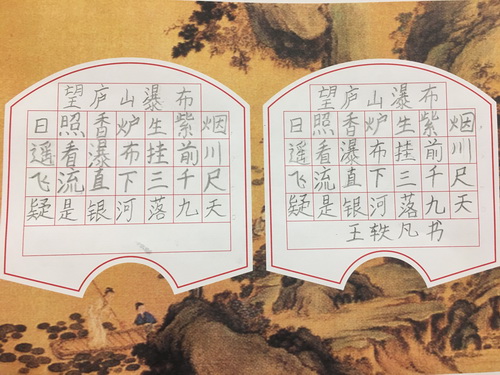 望庐山瀑布
日照香炉生紫烟
遥看瀑布挂前川
飞流直下三千尺
疑是银河落九天
望庐山瀑布
日照香炉生紫烟
遥看瀑布挂前川
飞流直下三千尺
疑是银河落九天
王轶凡书